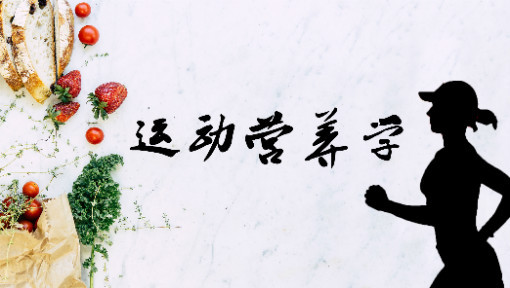 运动营养学